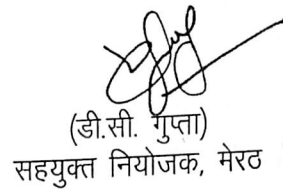 (डी.सी. गुप्ता)
सहयुक्त नियोजक, मेरठ